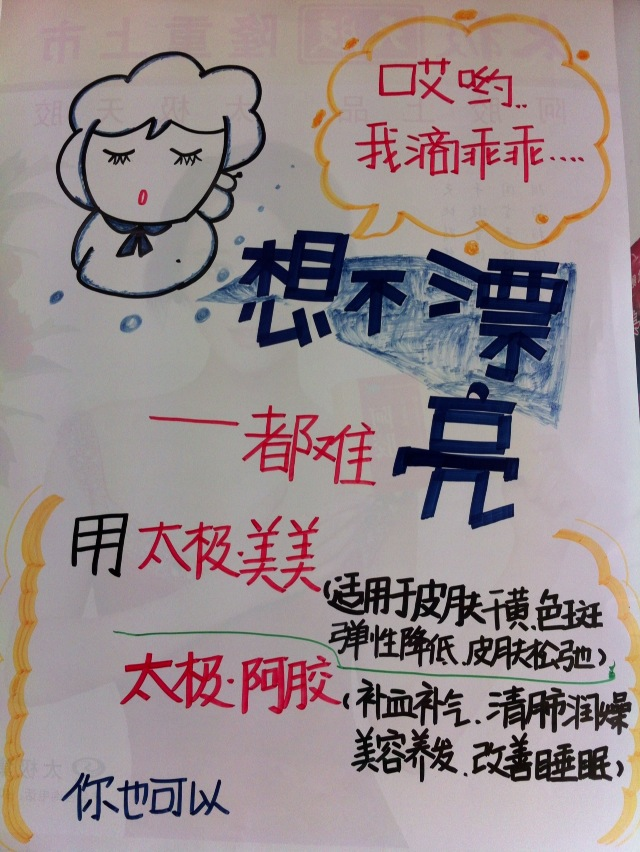 哎哟..
我滴乖乖....
想不漂亮
一都难
用太极·美美
(适用于皮肤干黄、色斑
弹性降低、皮肤松弛)
太极·阿胶
(补血补气、清肺润燥
美容养发、改善睡眠)
你也可以